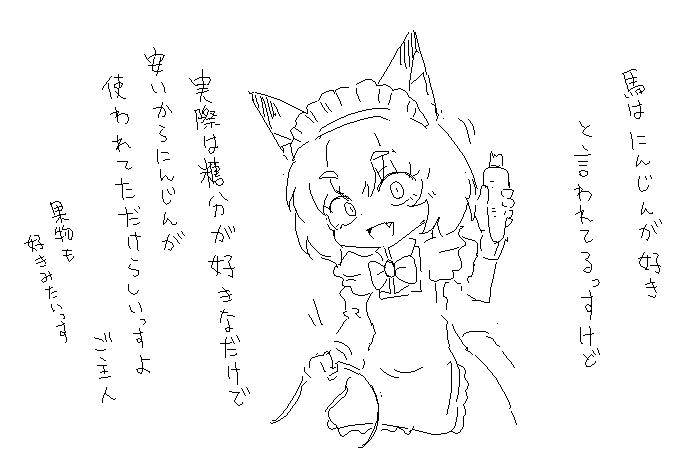 馬はにんじんが好き
と言われてるっすけど
実際は糖分が好きなだけで
安いからにんじんが
使われてただけらしいっすよ
ご主人
果物も
好きみたいっす